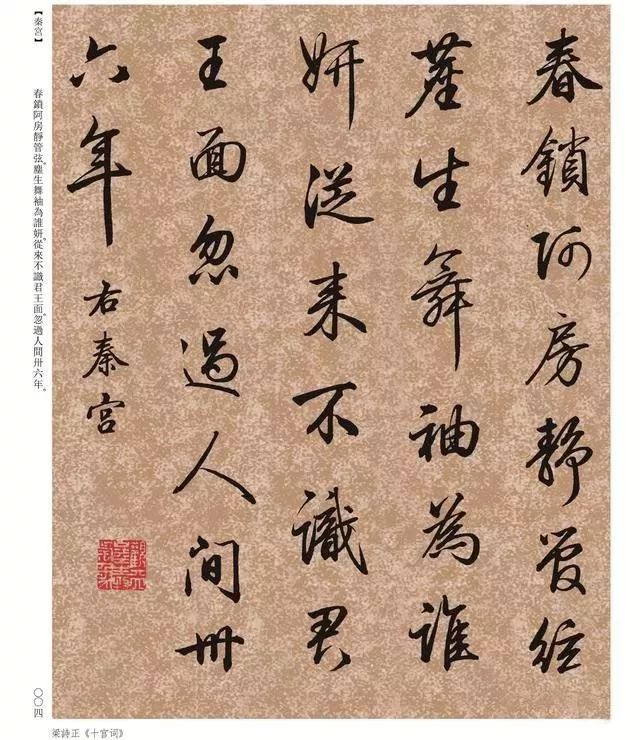 春鎖阿房靜管弦
塵生舞袖為誰
妍從来不識君
王面忽過人间卅
六年
右秦宮
【秦宮】
春鎖阿房靜管弦。塵生舞袖為誰妍。從來不識君王面。忽過人間卅六年。
〇〇四
梁詩正《十宮词》